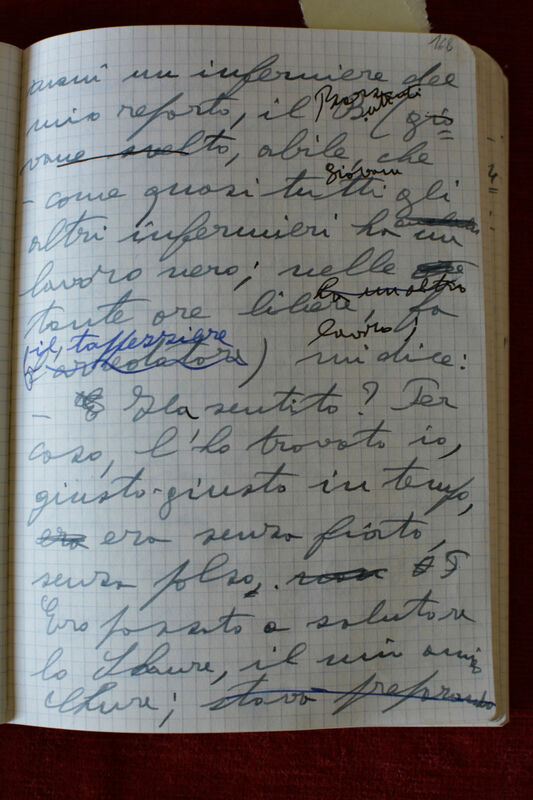 168
mani un infermiere del
mio reparto, il B (gio
vane svelto, abile, che
giovane
- come quasi tutti gli
altri infermieri ha un
lavoro nero; nelle
ha un altro
tante ore libere, fa
lavoro;
il tappezziere
arredatore) mi dice:
- Ha sentito? Per
caso, l'ho trovato io,
giusto-giusto in tempo,
era era senza fiato,
senza polso,
Ero passato a salutare
lo il mio amico
stava preparando